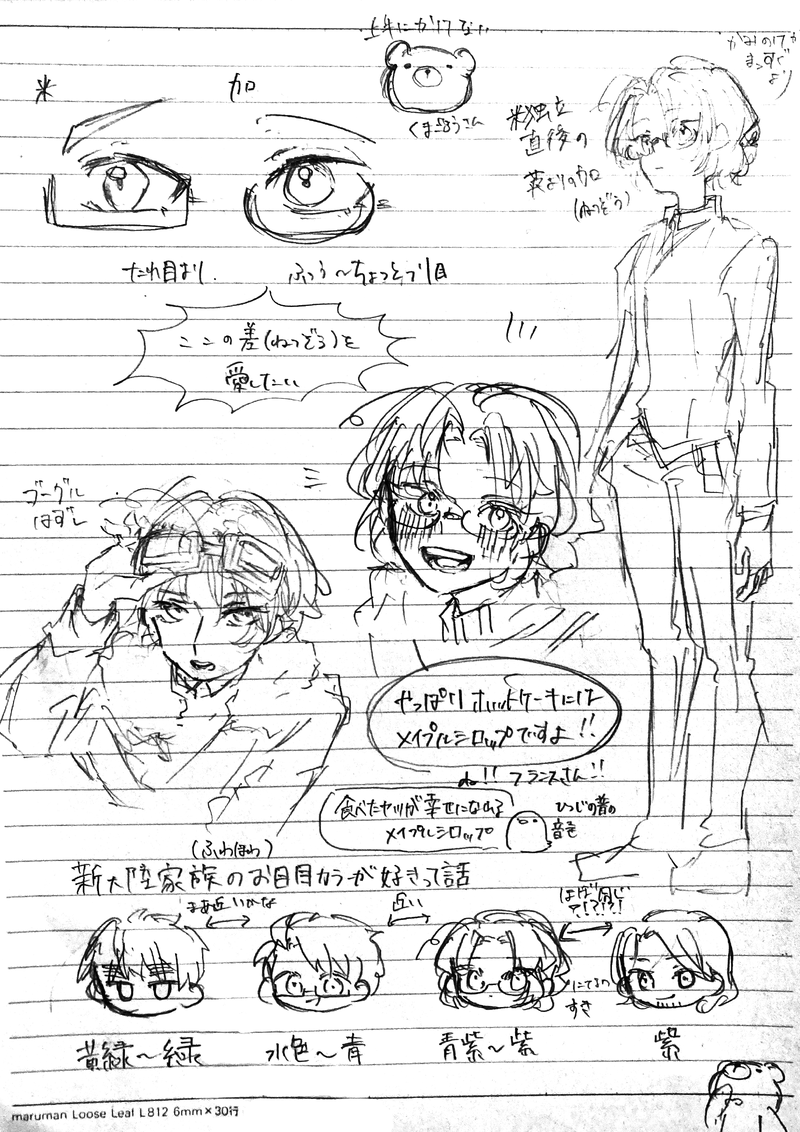 上手にかけない
くま吉さん
かみのけが
まっすぐ
より
米
加
米独立
直後の
英よりの加
(ねつぞう)
たれ目より
ふつう〜ちょっとツリ目
ここの差(ねつぞう)を
愛したい
ゴーグル
はずし
やっぱりホットケーキには
メイプルシロップですよ!!
ね!!フランスさん!!
食べたヤツが幸せになれる
メイプルシロップ
ひつじの着の
(ふわほわ)
新大陸家族のお目目カラーが好きって話
まあ近いかな
近い
ほぼ同じ
?!?!?!
にてるの
すき
黄緑〜緑
水色〜青
青紫〜紫
紫
maruman Loose Leaf L812 6mm×30行